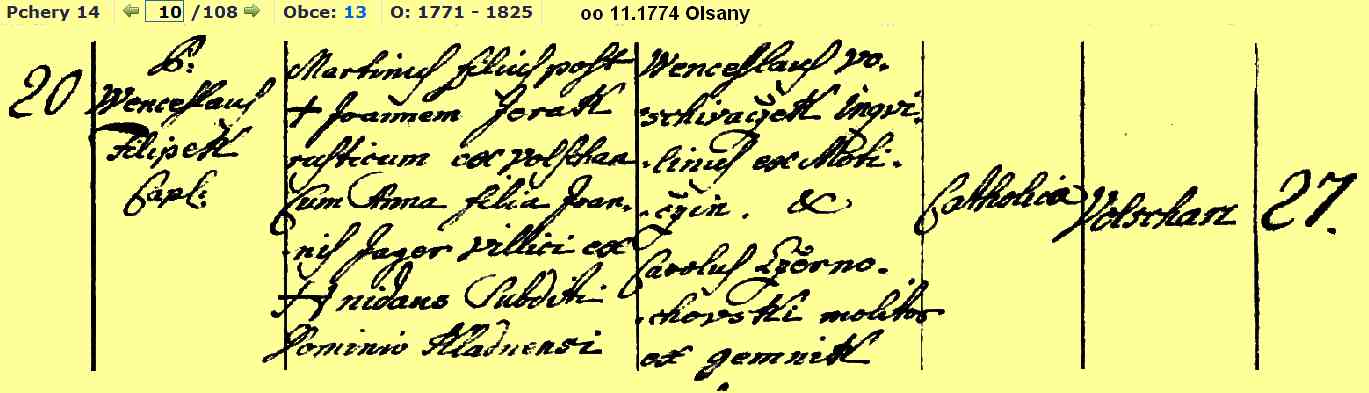 Pchery 14 10 /108 Obce: 13 O: 1771 - 1825 oo 11.1774 Olsany
20
P:
Wenceslaus
Filipek
Capl:
Martinus filius post
+ Joannem Jorak
rusticum ex Volschan
Cum Anna filia Joan-
-nis Jager villici ex
Subditi
Dominio Kladnensi
Wenceslaus Vo-
-schivaczek inqvi-
-linus ex Moti-
-czin. &
Carolus Czörno-
-chovski molitor
ex gemnik
Catholica
Volschan
27.